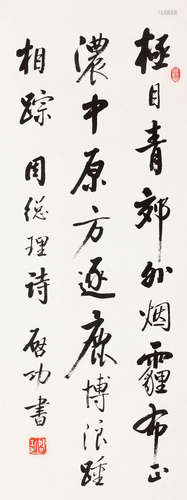 極目青郊外烟霾布正
濃中原方逐鹿博浪踵
相踪 周總理詩 啓功書